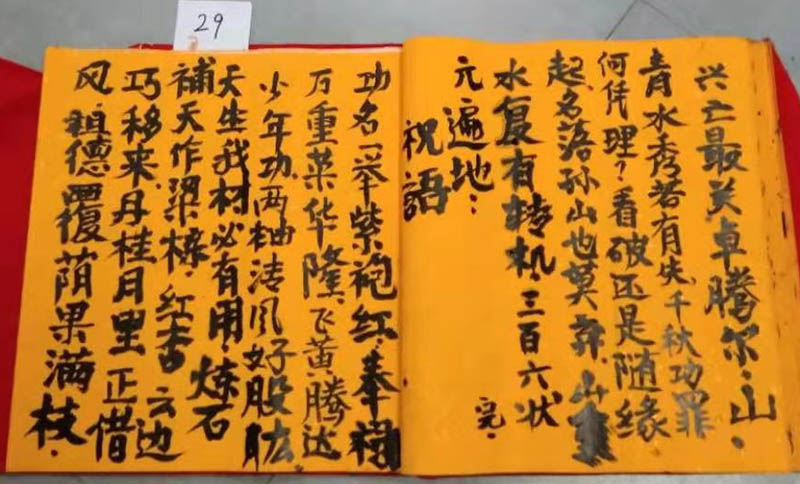 29
兴亡最关卓腾尔、山、
青水秀若有失、千秋功罪
何凭理?看破还是随缘
起、名落孙山也莫弃、山重
水复有转机、三百六状
元遍地: 完、
祝語
功名一举紫袍红、奉禄
万重荣华隆、飞黄腾达
少年功、两袖清风好股肱
天生我材必有用、炼石
補天作梁栋、红杏云边
巧移来、丹桂月里正借
风、祖德覆荫果满枝、